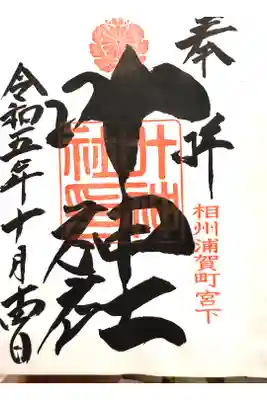 奉拝
相州浦賀町宮下
叶神社
叶神社印
令和五年十月日